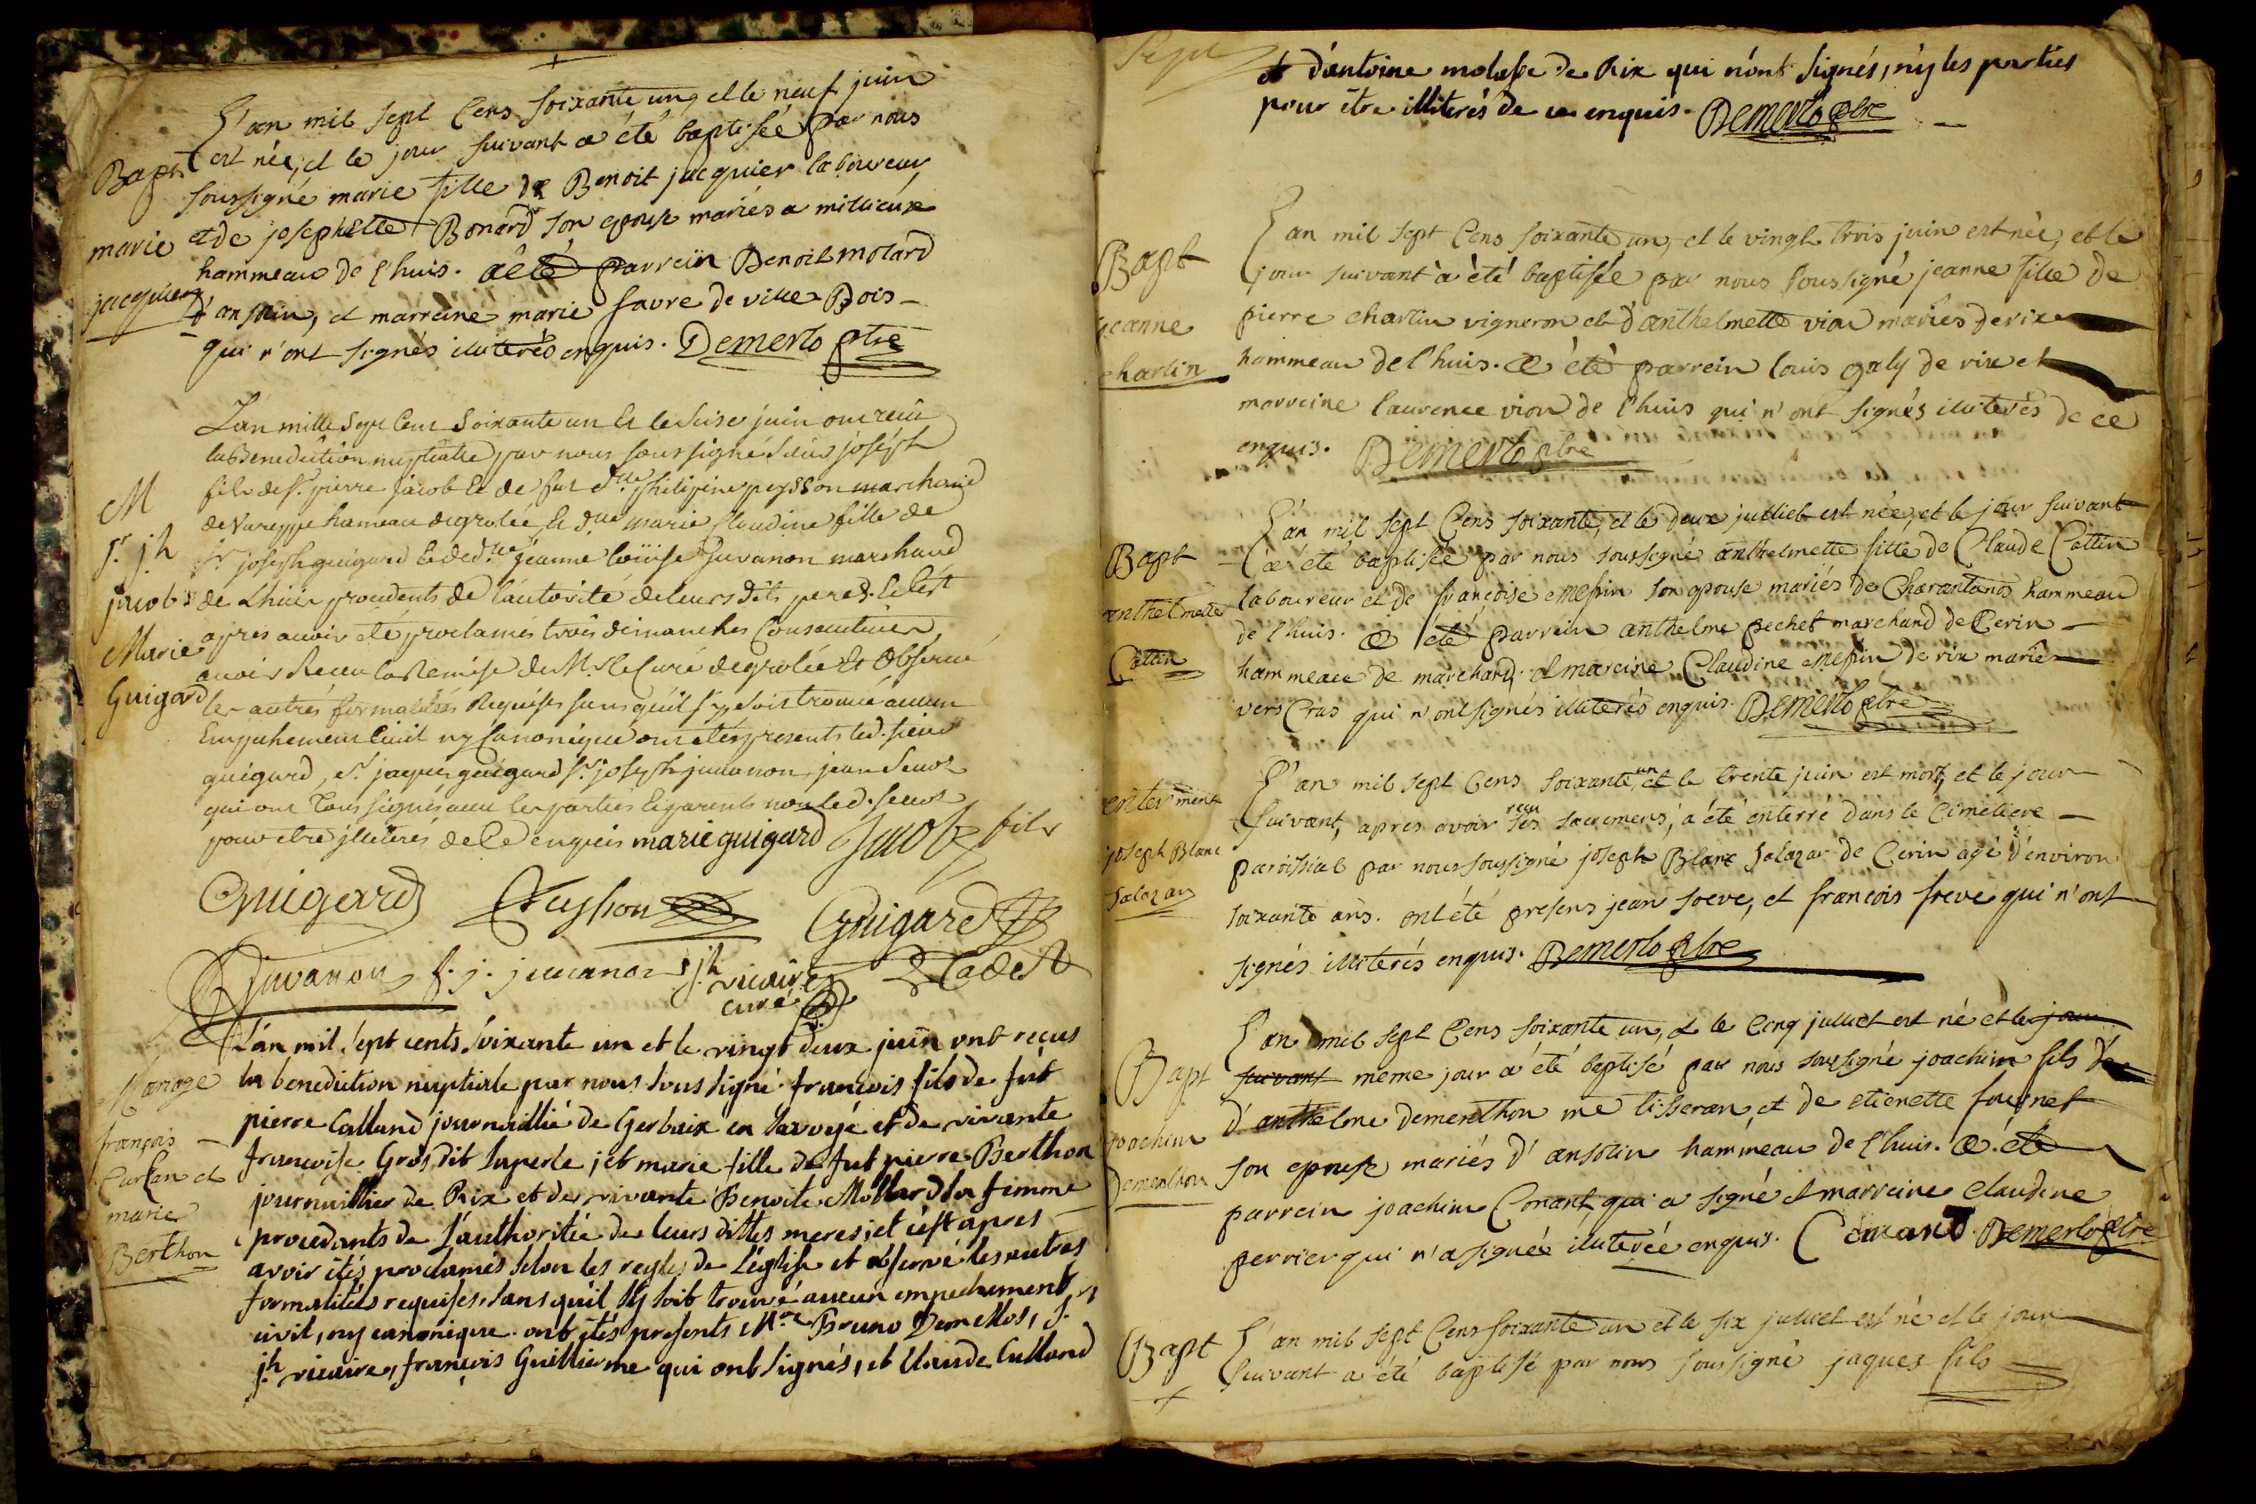 L'an mil sept Cens soixante un, et le neuf juin
est née, et le jour suivant a été baptisée par nous
Bapt
soussigné marie fille de Benoit jacquier laboureur
marie
et de josephette Bonard son epouse mariés a millieux
hammeau de l'huis. a été parrein Benoit molard
jacquier
d'ansolin, et marreine marie favre de ville Bois
qui n'ont signés illiterés enquis. Demerlo ptre
L'an mille sept Cent Soixante un et le seise juin ont recu
la Benediction nuptialle par nous sous signé sieur joséph
M
fils de Sr. pierre jacob et de fut dlle philipine peysson marchand
de vareppe hameau de grolée, et dlle marie Claudine fille de
Sr. jh
Sr joseph guigard et de dlle jeanne Loüise Juvanon marchand
jacob &
de Lhuis procedents de l'autorité de leurs dits peres. et c'est
apres avoir été proclamés trois dimanches Consecutives,
Marie
avoir Receu la Remise de Mr le Curé de grolée Et Observé
Guigard
les autres formalités Requises sans qu'il s'y soit trouvé aucun
Empechement Civil ny Canonique ont étés presents led. sieur
guigard, Sr. jaques guigard Sr joseph juvanon, jean Seuot
qui ont tous signés avec les parties et parents non led. seuot
pour etre jlliterés de Ce enquis marie guigard Jacob fils
Guigard Peysson Guigard
Juvanon f. j. juvanon S. jh vicaire Cadet
curé
L'an mil sept cents soixante un et le vingt deux juin ont reçus
Mariage
la benediction nuptiale par nous sous signé. françois fils de fut
pierre Calland journaillié de Gerbaix en Savoye et de vivante
françois
françoise Gros dit Superle ; et marie fille de fut pierre Berthon
et
journaillier de Rix et de vivante Benoite Mollard sa femme
marie
procedants de L'authoritée de leurs dittes meres ; et c'est apres
Berthon
avoir étés proclamés selon les regles de l'église et observé les autres
formalités requises, sans qu'il s'y soit trouvé aucun empechement ny
civil, ny canonique. ont étés presents Mre Bruno Demerlos, S.
jh vicaire, françois Guillierme qui ont signés, et Claude Culland
et d'antoine molasse de Rix qui n'ont signés, ny les parties
pour être illiterés de ce enquis. Demerlo ptre
L'an mil sept Cens soixante un, et le vingt trois juin est née, et le
Bapt
jour suivant a été baptisée par nous soussigné jeanne fille de
jeanne
pierre charlin vigneron et d'anthelmette vion mariés de rix
charlin
hammeau de l'huis. a été parrein louis galy de rix et
marreine laurence vion de l'huis qui n'ont signés illiterés de ce
enquis. Demerlo ptre
L'an mil sept Cens soixante, et le deux juillet est née, et le jour suivant
Bapt
a été baptisée par nous soussigné anthelmette fille de Claude Cottin
anthelmette
laboureur et de françoise messin son epouse mariés de Charantonos hammeau
de l'huis. a été parrein anthelme pechet marchand de Cerin
Cottin
hammeau de marchand. et mareine Claudine messin de rix marié
vers Cras qui n'ont signés illiterés enquis. Demerlo ptre
L'an mil sept Cens soixante un et le trente juin est mort, et le jour
enterment
suivant, apres avoir reçu ses sacremens, a été enterré dans le Cimetiere
joseph Blanc
paroissial par nous soussigné joseph Blanc Salazar de Cerin agé d'environ
Salazar
soixante ans. ont été presens jean soeve, et francois sreve qui n'ont
signés illiterés enquis. Demerlo ptre
L'an mil sept Cens soixante un, et le Cinq juillet est né et le jour
Bapt
suivant meme jour a été baptisé par nous soussigné joachim fils d
joachim
d'anthelme dementhon me tisseran, et de etienette fournet
Dementhon
son epouse mariés d'ansolin hammeau de l'huis. a été
parrein joachim Conant qui a signé et marreine Claudine
perrier qui n'a signée illiterée enquis. Conant. Demerlo ptre
Bapt
L'an mil sept Cens soixante un et le six juillet est né et le jour
suivant a été baptisé par nous soussigné jaques fils